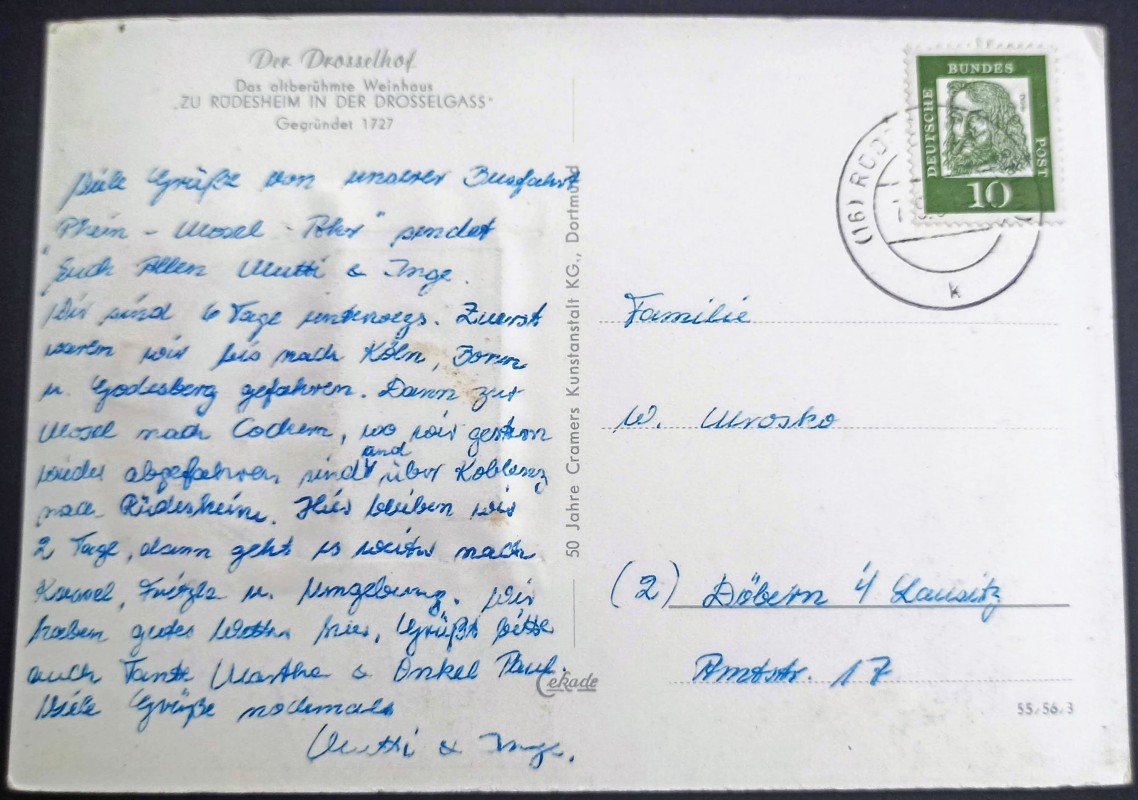 Der Drosselhof
Das altberühmte Weinhaus
„ZU RÜDESHEIM IN DER DROSSELGASS"
Gegründet 1727
Viele Grüße von unserer Busfahrt
"Rhein - Mosel - Ahr" sendet
Euch Allen Mutti & Inge.
Wir sind 6 Tage unterwegs. Zuerst
waren wir bis nach Köln, Bonn
u. Godesberg gefahren. Dann zur
Mosel nach Cochem, wo wir gestern
wieder abgefahren sind und über Koblenz
nach Rüdesheim. Hier bleiben wir
2 Tage, dann geht es weiter nach
Kassel, Fritzlar u. Umgebung. Wir
haben gutes Wetter hier, Grüßt bitte
auch Tante Martha & Onkel Paul.
Viele Grüße nochmals
Mutti & Inge.
50 Jahre Cramers Kunstanstalt KG., Dortmund
Cekade
DEUTSCHE
BUNDES
POST
10
(16) RÜD
k
Familie
W. Mrosko
(2) Döbern i/ Lausitz
Amtstr. 17
55/56/3